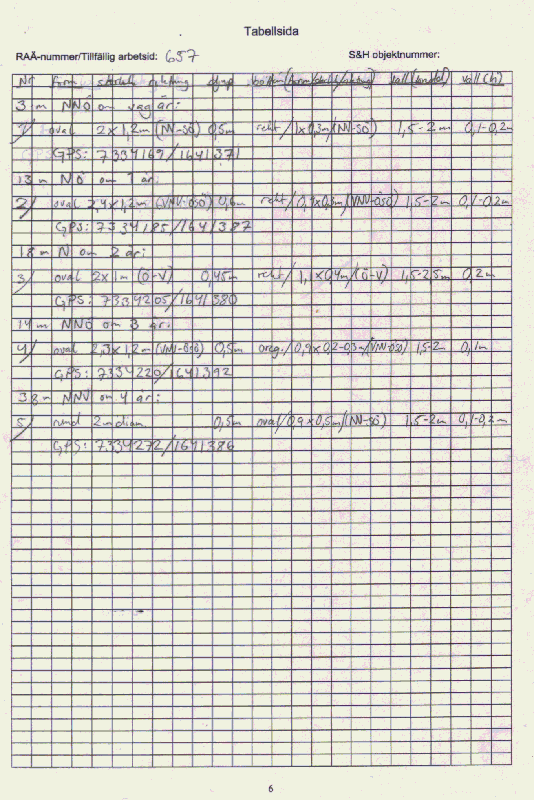 Tabellsida
RAÄ-nummer/Tillfällig arbetsid: 657 S&H objektnummer:
Nr form storlek riktning djup botten (form/storlek/riktning) vall (bredd) vall (h)
3 m NNÖ om väg är:
1) oval 2x1,2m (NV-SÖ) 0,5m rekt/1x0,3m/(NV-SÖ) 1,5-2m 0,1-0,2m
GPS: 7334169/1641371
13 m NÖ om 1 är:
2) oval 2,4x1,2m (VNV-ÖSÖ) 0,6m rekt/0,9x0,3m/(VNV-ÖSÖ) 1,5-2m 0,1-0,2m
GPS: 7334185/1641387
18 m N om 2 är:
3) oval 2x1m (Ö-V) 0,45m rekt/1,1x0,4m/(Ö-V) 1,5-2,5m 0,2m
GPS: 7334205/1641380
14 m NNÖ om 3 är:
4) oval 2,3x1,2m (VNV-ÖSÖ) 0,5m oreg./0,9x0,2-0,3m/(VNV-ÖSÖ) 1,5-2m 0,1m
GPS: 7334220/1641392
38 m NNV om 4 är:
5) rund 2m diam 0,5m oval/0,9x0,5m/(NV-SÖ) 1,5-2m 0,1-0,2m
GPS: 7334272/1641386
6